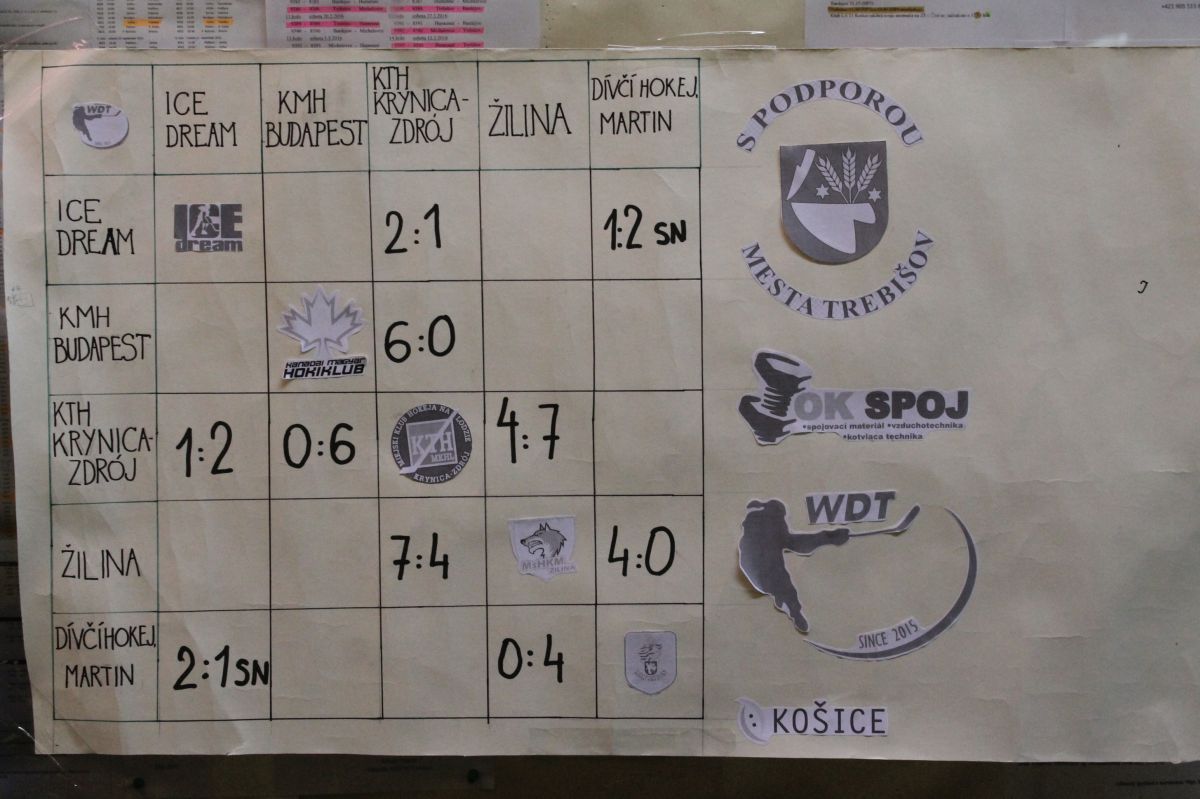 WDT
ICE
DREAM
KMH
BUDAPEST
KTH
KRYNICA-
ZDRÓJ
ŽILINA
DÍVČÍ HOKEJ,
MARTIN
ICE
DREAM
ICE
dream
2:1
1:2 SN
KMH
BUDAPEST
KANADAI MAGYAR
HOKIKLUB
6:0
KTH
KRYNICA-
ZDRÓJ
1:2
0:6
MIEJSKI KLUB HOKEJA NA LODZIE
KTH
MKHL
KRYNICA-ZDRÓJ
4:7
ŽILINA
7:4
MsHKM
ŽILINA
4:0
DÍVČÍ HOKEJ,
MARTIN
2:1 SN
0:4
S PODPOROU
MESTA TREBIŠOV
OK SPOJ
•spojovací materiál •vzduchotechnika
•kotviaca technika
WDT
SINCE 2015
KOŠICE